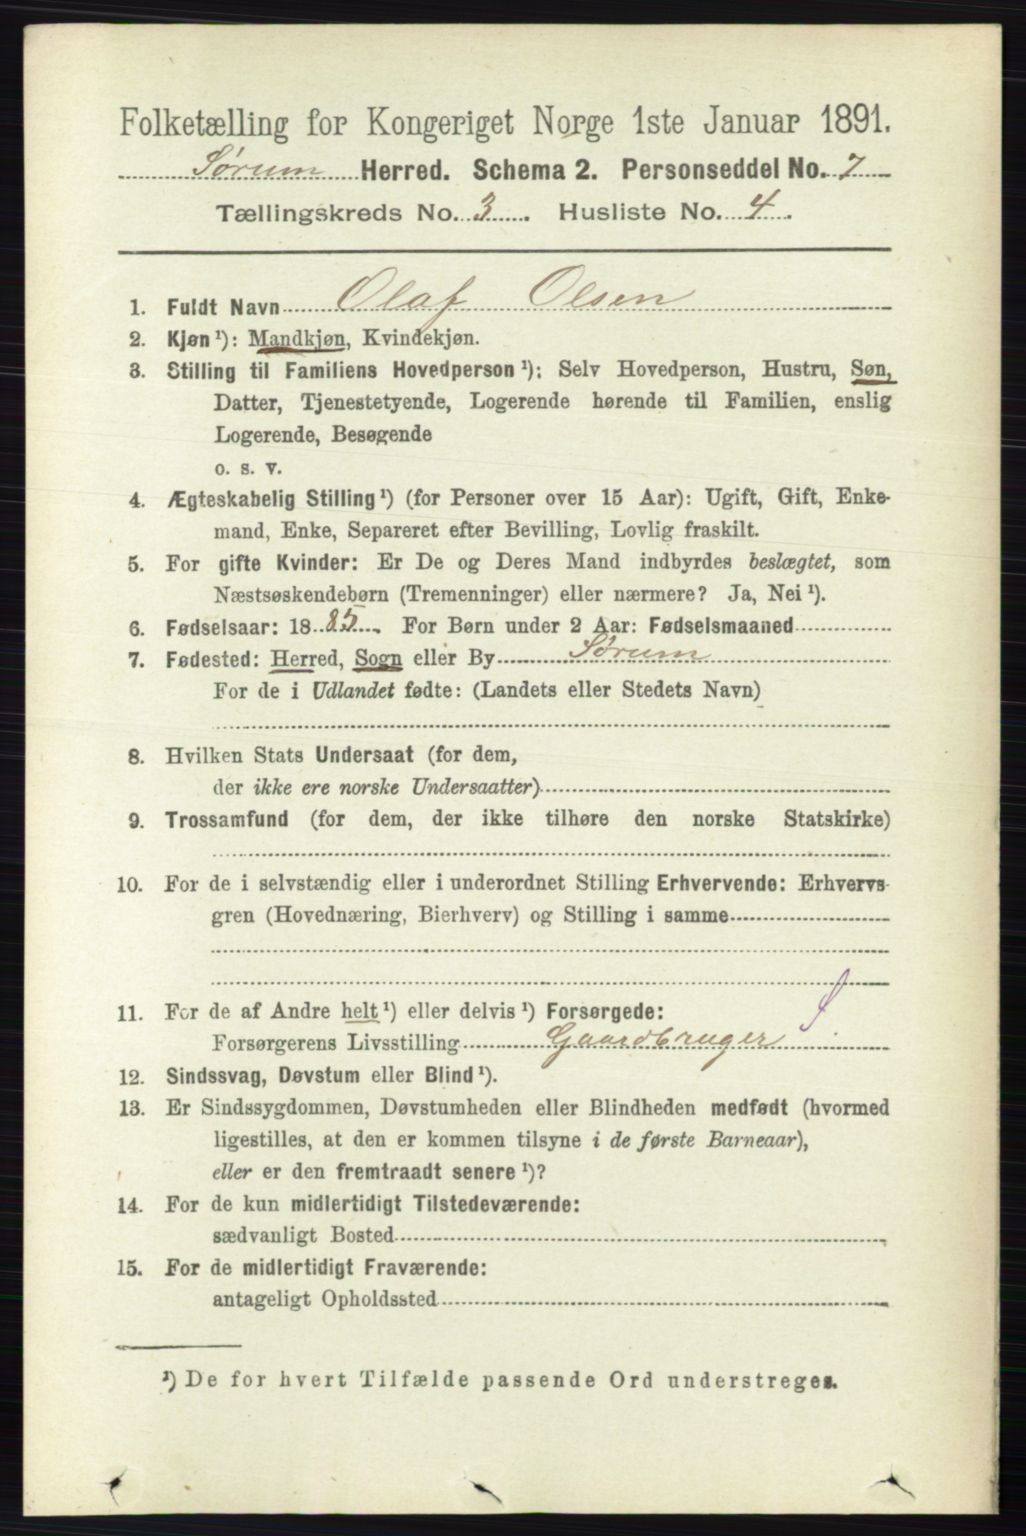 Folketælling for Kongeriget Norge 1ste Januar 1891.
Sørum Herred. Schema 2. Personseddel No. 7
Tællingskreds No. 3. Husliste No. 4.
1. Fuldt Navn Olaf Olsen
2. Kjøn ¹): Mandkjøn, Kvindekjøn.
3. Stilling til Familiens Hovedperson ¹): Selv Hovedperson, Hustru, Søn,
Datter, Tjenestetyende, Logerende hørende til Familien, enslig
Logerende, Besøgende
o. s. v.
4. Ægteskabelig Stilling ¹) (for Personer over 15 Aar): Ugift, Gift, Enke-
mand, Enke, Separeret efter Bevilling, Lovlig fraskilt.
5. For gifte Kvinder: Er De og Deres Mand indbyrdes beslægtet, som
Næstsøskendebørn (Tremenninger) eller nærmere? Ja, Nei ¹).
6. Fødselsaar: 1885. For Børn under 2 Aar: Fødselsmaaned
7. Fødested: Herred, Sogn eller By Sørum
For de i Udlandet fødte: (Landets eller Stedets Navn)
8. Hvilken Stats Undersaat (for dem,
der ikke ere norske Undersaatter)
9. Trossamfund (for dem, der ikke tilhøre den norske Statskirke)
10. For de i selvstændig eller i underordnet Stilling Erhvervende: Erhvervs-
gren (Hovednæring, Bierhverv) og Stilling i samme
11. For de af Andre helt ¹) eller delvis ¹) Forsørgede:
Forsørgerens Livsstilling Gaardbruger
12. Sindssvag, Døvstum eller Blind ¹).
13. Er Sindssygdommen, Døvstumheden eller Blindheden medfødt (hvormed
ligestilles, at den er kommen tilsyne i de første Barneaar),
eller er den fremtraadt senere ¹)?
14. For de kun midlertidigt Tilstedeværende:
sædvanligt Bosted
15. For de midlertidigt Fraværende:
antageligt Opholdssted
¹) De for hvert Tilfælde passende Ord understreges.